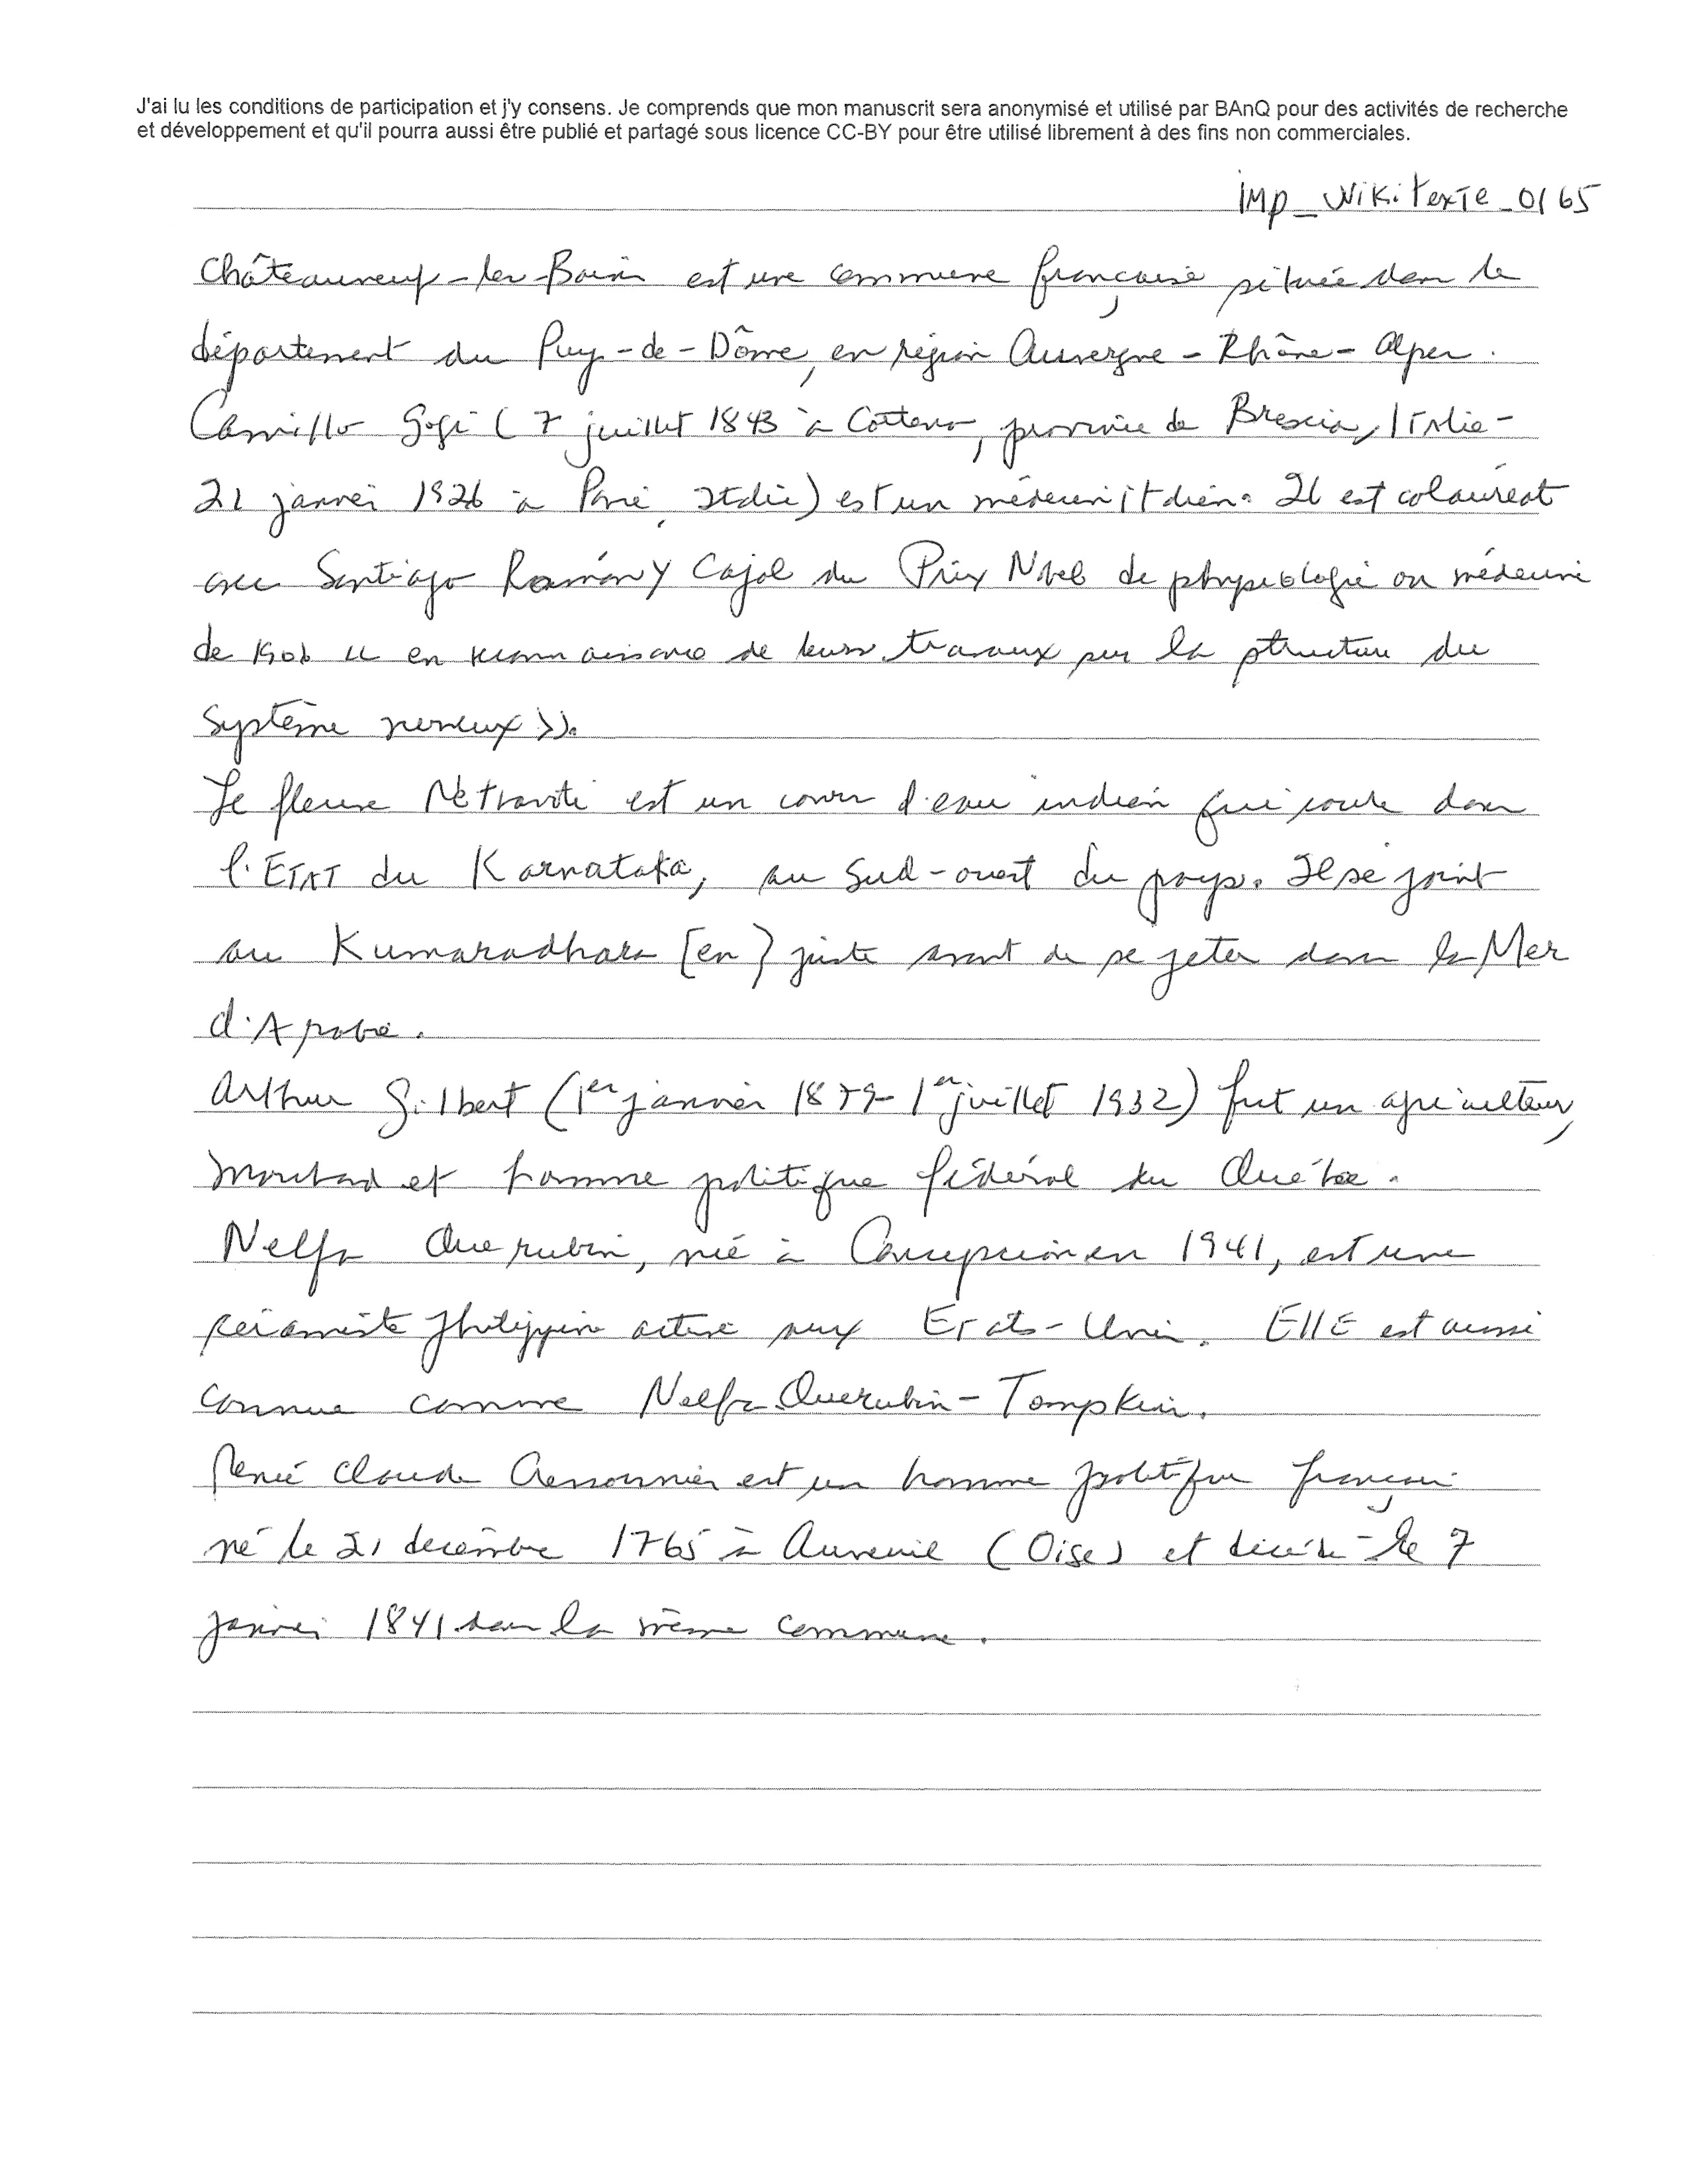 J'ai lu les conditions de participation et j'y consens. Je comprends que mon manuscrit sera anonymisé et utilisé par BAnQ pour des activités de recherche
et développement et qu'il pourra aussi être publié et partagé sous licence CC-BY pour être utilisé librement à des fins non commerciales.
imp_Wikitexte_0165
Châteauneuf-les-Bains est une commune française située dans le
département du Puy-de-Dôme, en région Auvergne-Rhône-Alpes.
Camillo Golgi (7 juillet 1843 à Corteno, province de Brescia, Italie-
21 janvier 1926 à Pavie, Italie) est un médecin italien. Il est colauréat
avec Santiago Ramón y Cajal du Prix Nobel de physiologie ou médecine
de 1906 « en reconnaissance de leurs travaux sur la structure du
système nerveux ».
Le fleuve Netravati est un cours d'eau indien qui coule dans
l'État du Karnataka, au sud-ouest du pays. Il se joint
au Kumaradhara [en] juste avant de se jeter dans la Mer
d'Arabie.
Arthur Gilbert (1er janvier 1879-1er juillet 1932) fut un agriculteur,
marchand et homme politique fédéral du Québec.
Nelfa Querubin, née à Concepcion en 1941, est une
céramiste philippine active aux Etats-Unis. Elle est aussi
connue comme Nelfa Querubin-Tompkins.
René Claude est un homme politique français
né le 21 décembre 1765 à Auneuil (Oise) et décédé le 7
janvier 1841 dans la même commune.